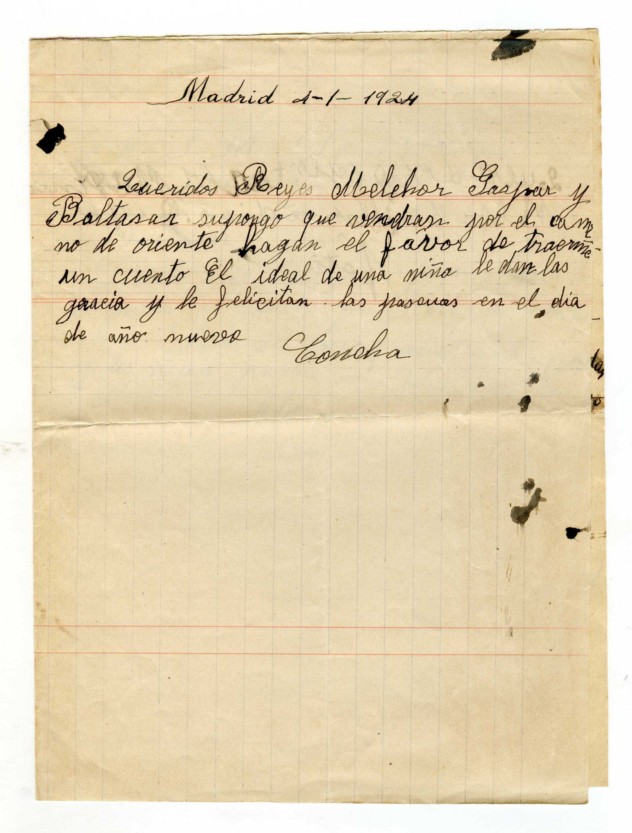 Madrid 1-1-1924
Queridos Reyes Melchor Gaspar y
Baltasar supongo que vendran por el cami
no de oriente hagan el favor de traerme
un cuento El ideal de una niña le dan las
gracia y le felicitan las pascuas en el dia
de año nuevo
Concha